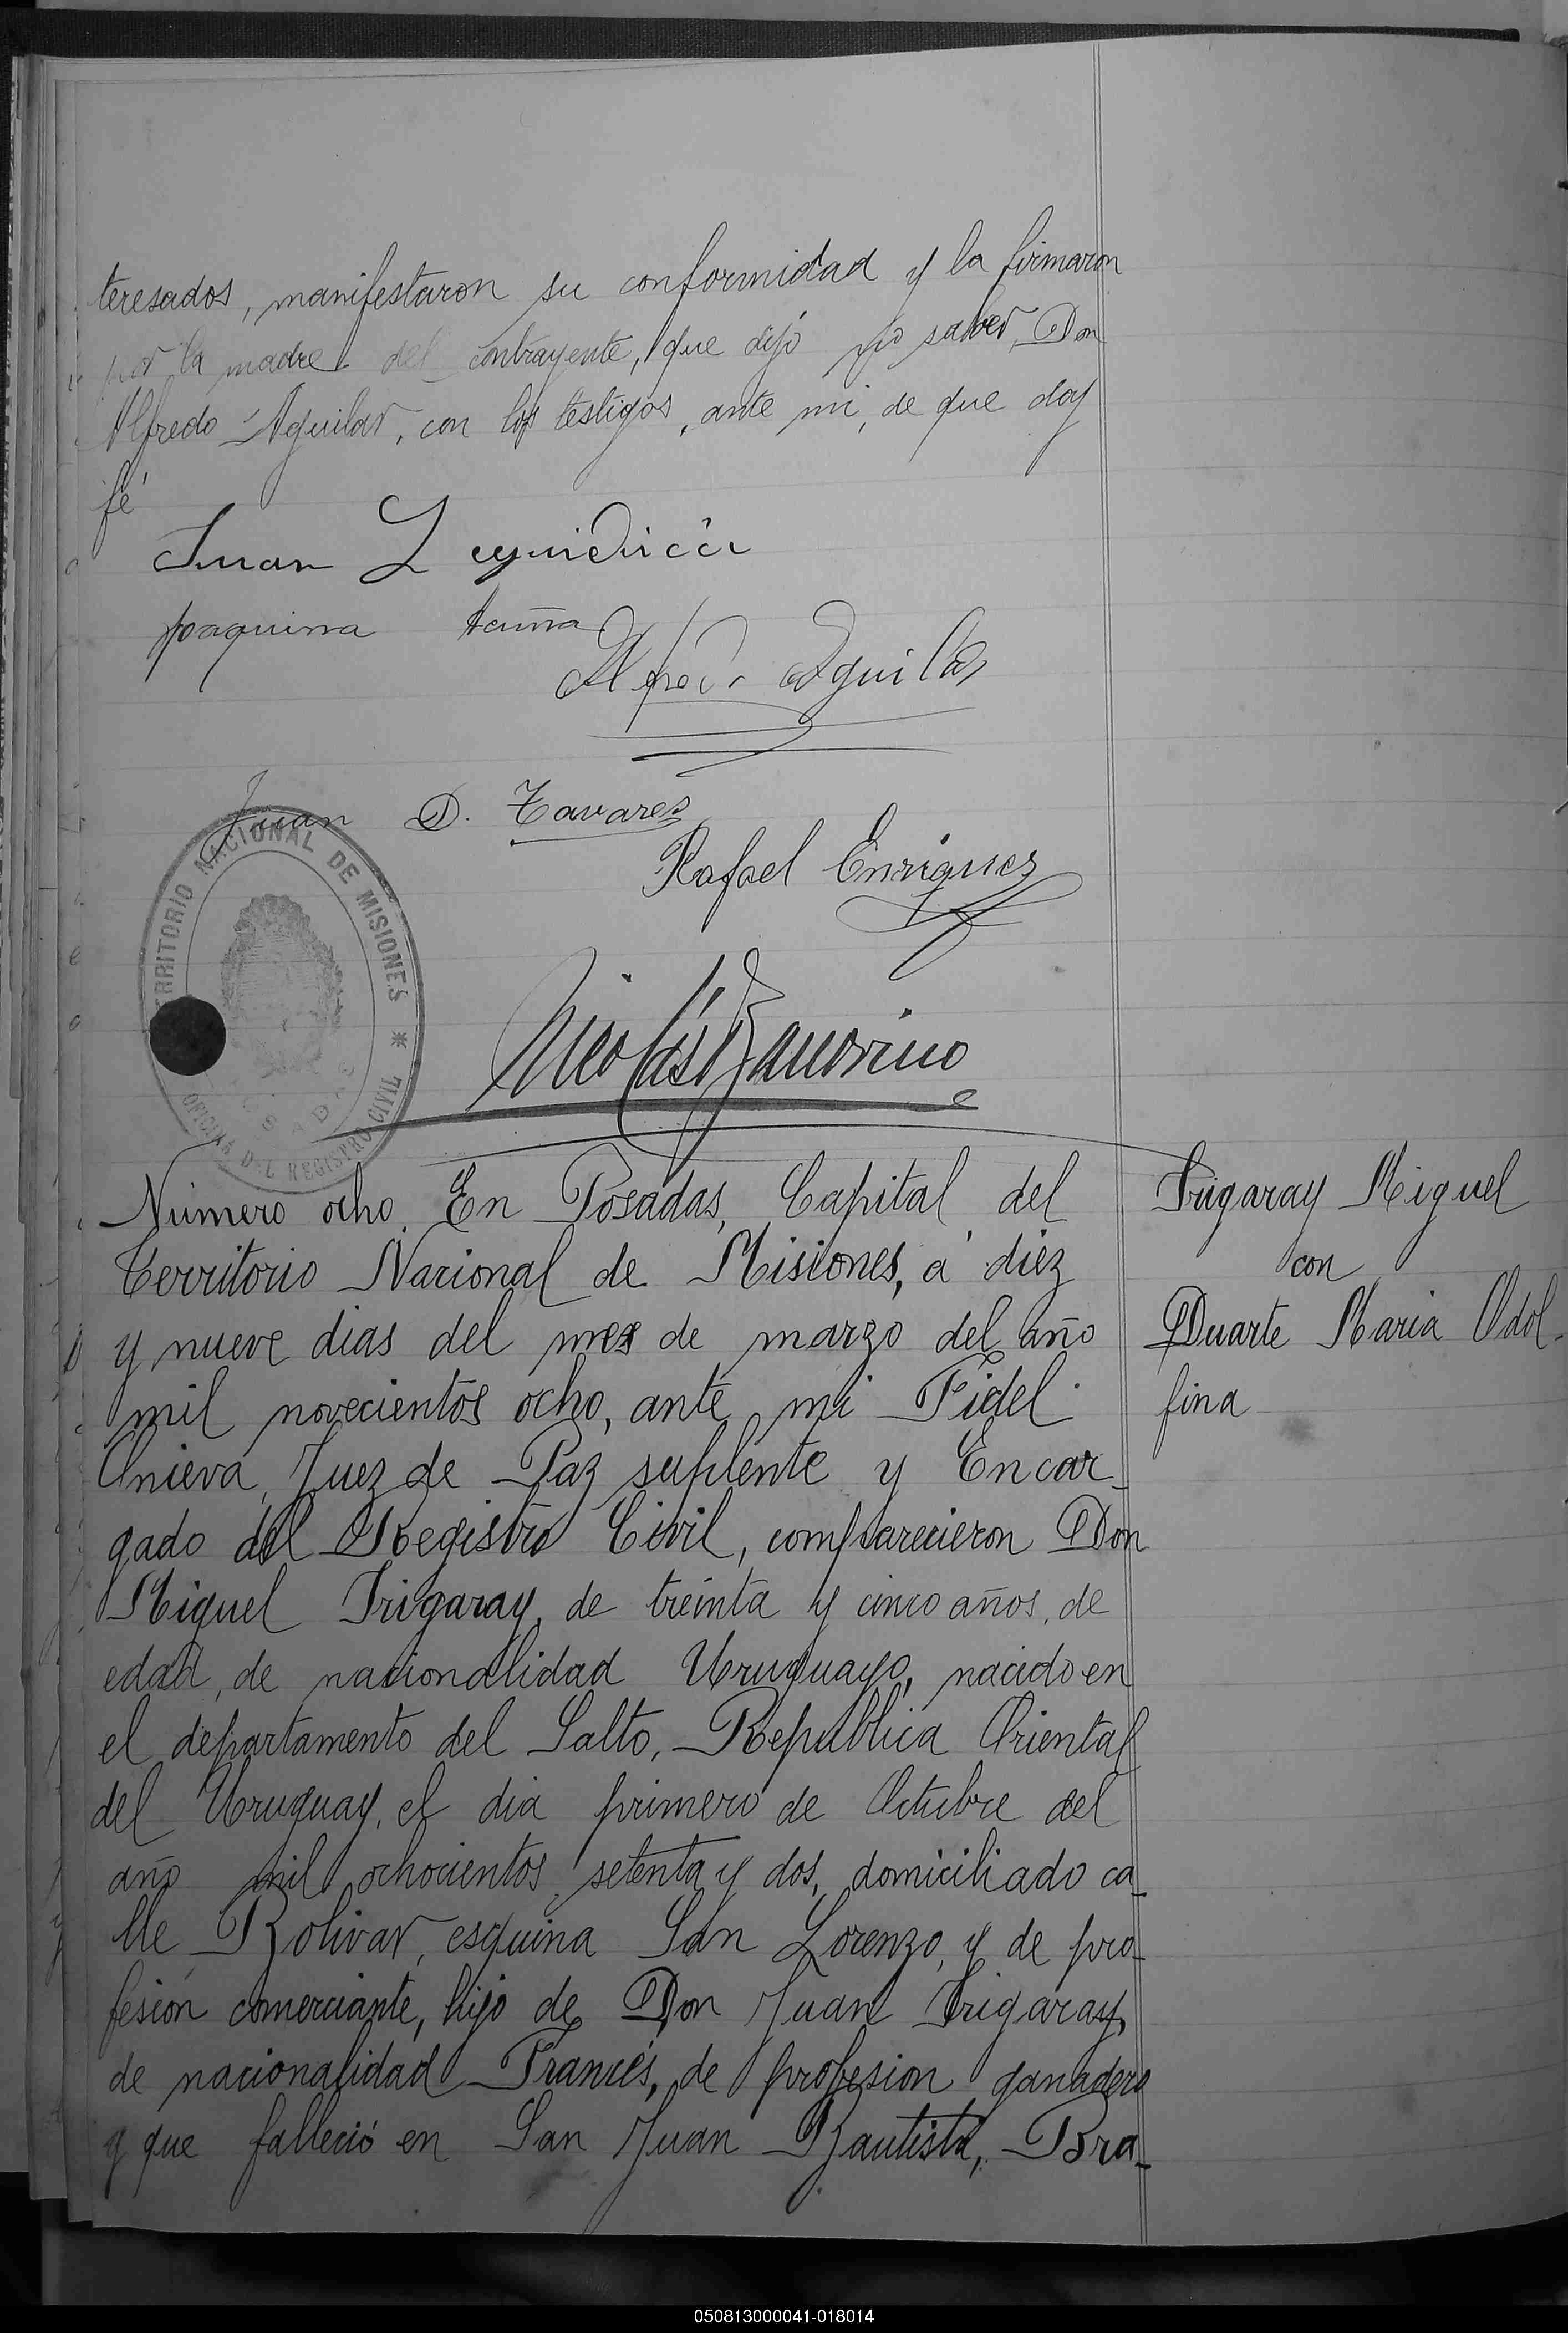 teresados, manifestaron su conformidad y la firmaron
por la madre del contrayente, que dijo no saber, Don
Alfredo Aguilar, con los testigos, ante mi, de que doy
fé
Juan
Joaquina Acuña
Alfredo Aguilar
Juan D. Tavares
Rafael Enriquez
TERRITORIO NACIONAL DE MISIONES * OFICINA DEL REGISTRO CIVIL
Nicolás
Número ocho. En Posadas, Capital del
Territorio Nacional de Misiones, á diez
y nueve dias del mes de marzo del año
mil novecientos ocho, ante mi Fidel
Onieva, Juez de Paz suplente y Encar-
gado del Registro Civil, comparecieron Don
Miguel Irigaray, de treinta y cinco años, de
edad, de nacionalidad Uruguayo, nacido en
el departamento del Salto, República Oriental
del Uruguay, el dia primero de Octubre del
año mil ochocientos setenta y dos, domiciliado ca-
lle Bolivar, esquina San Lorenzo, y de pro-
fesión comerciante, hijo de Don Juan Irigaray,
de nacionalidad Francés, de profesion ganadero
y que falleció en San Juan Bautista, Bra-
Irigaray Miguel
con
Duarte Maria Odol-
fina
050813000041-018014